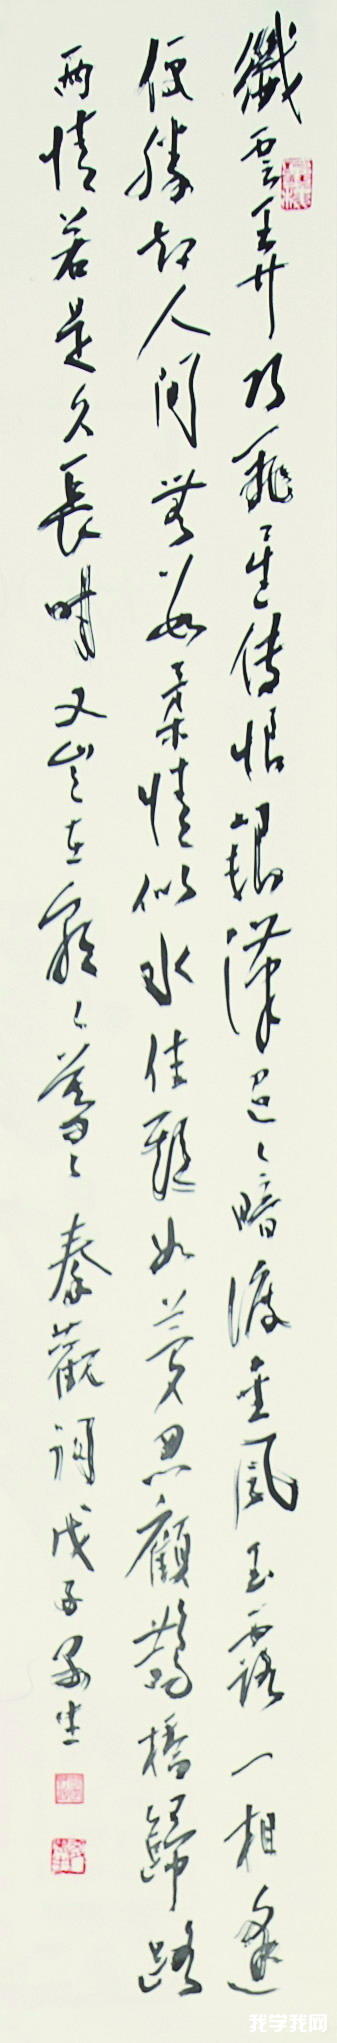 纖雲弄巧飛星傳恨銀漢迢〻暗渡金風玉露一相逢
便勝却人間無數柔情似水佳期如夢忍顧鵲橋歸路
兩情若是久長時又豈在朝〻暮〻秦觀詞戊子
我学我网